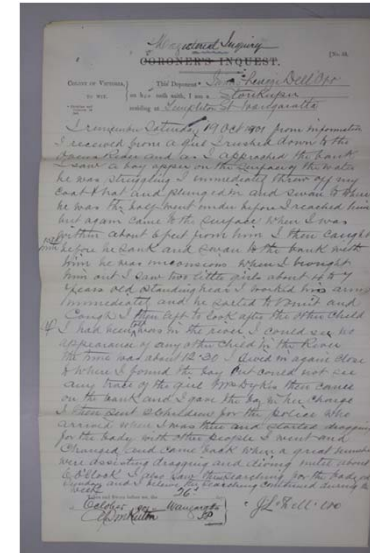 Magisterial Inquiry
CORONER'S INQUEST.
COLONY OF VICTORIA, This Deponent
TO WIT. on h oath saith, I am a Storekeeper
residing at Templeton St Wangaratta
I remember Saturday 19 Oct 1901 from information
I received from a girl I rushed down to the
Ovens River and as I approached the bank
I saw a boy appear on the surface of the water
he was struggling I immediately threw off my
coat & hat and plunged in and swam to where
he was the boy went under before I reached him
but again came to the surface when I was
within about 6 feet from him I then caught
him before he sank and swam to the bank with
him he was unconscious when I brought
him out I saw two little girls about 6 to 7
years old standing near I worked his arms
immediately and he started to vomit and
cough I then left to look after the other child
I had been in the river I could see no
appearance of any other child in the River
the time was about 12.30 I dived in again close
to where I found the boy but could not see
any trace of the girl Mrs Dykes then came
on the bank and I gave the boy in her charge
I then sent children for the police who
arrived when I was there and started dragging
for the body with other people I went and
changed and came back when a great number
were assisting dragging and diving until about
6 O'clock I also saw them searching for the body on
Sunday and I believe the searching continued during the
week
Taken and sworn before me, the 26th
October 1901 Wangaratta
JP